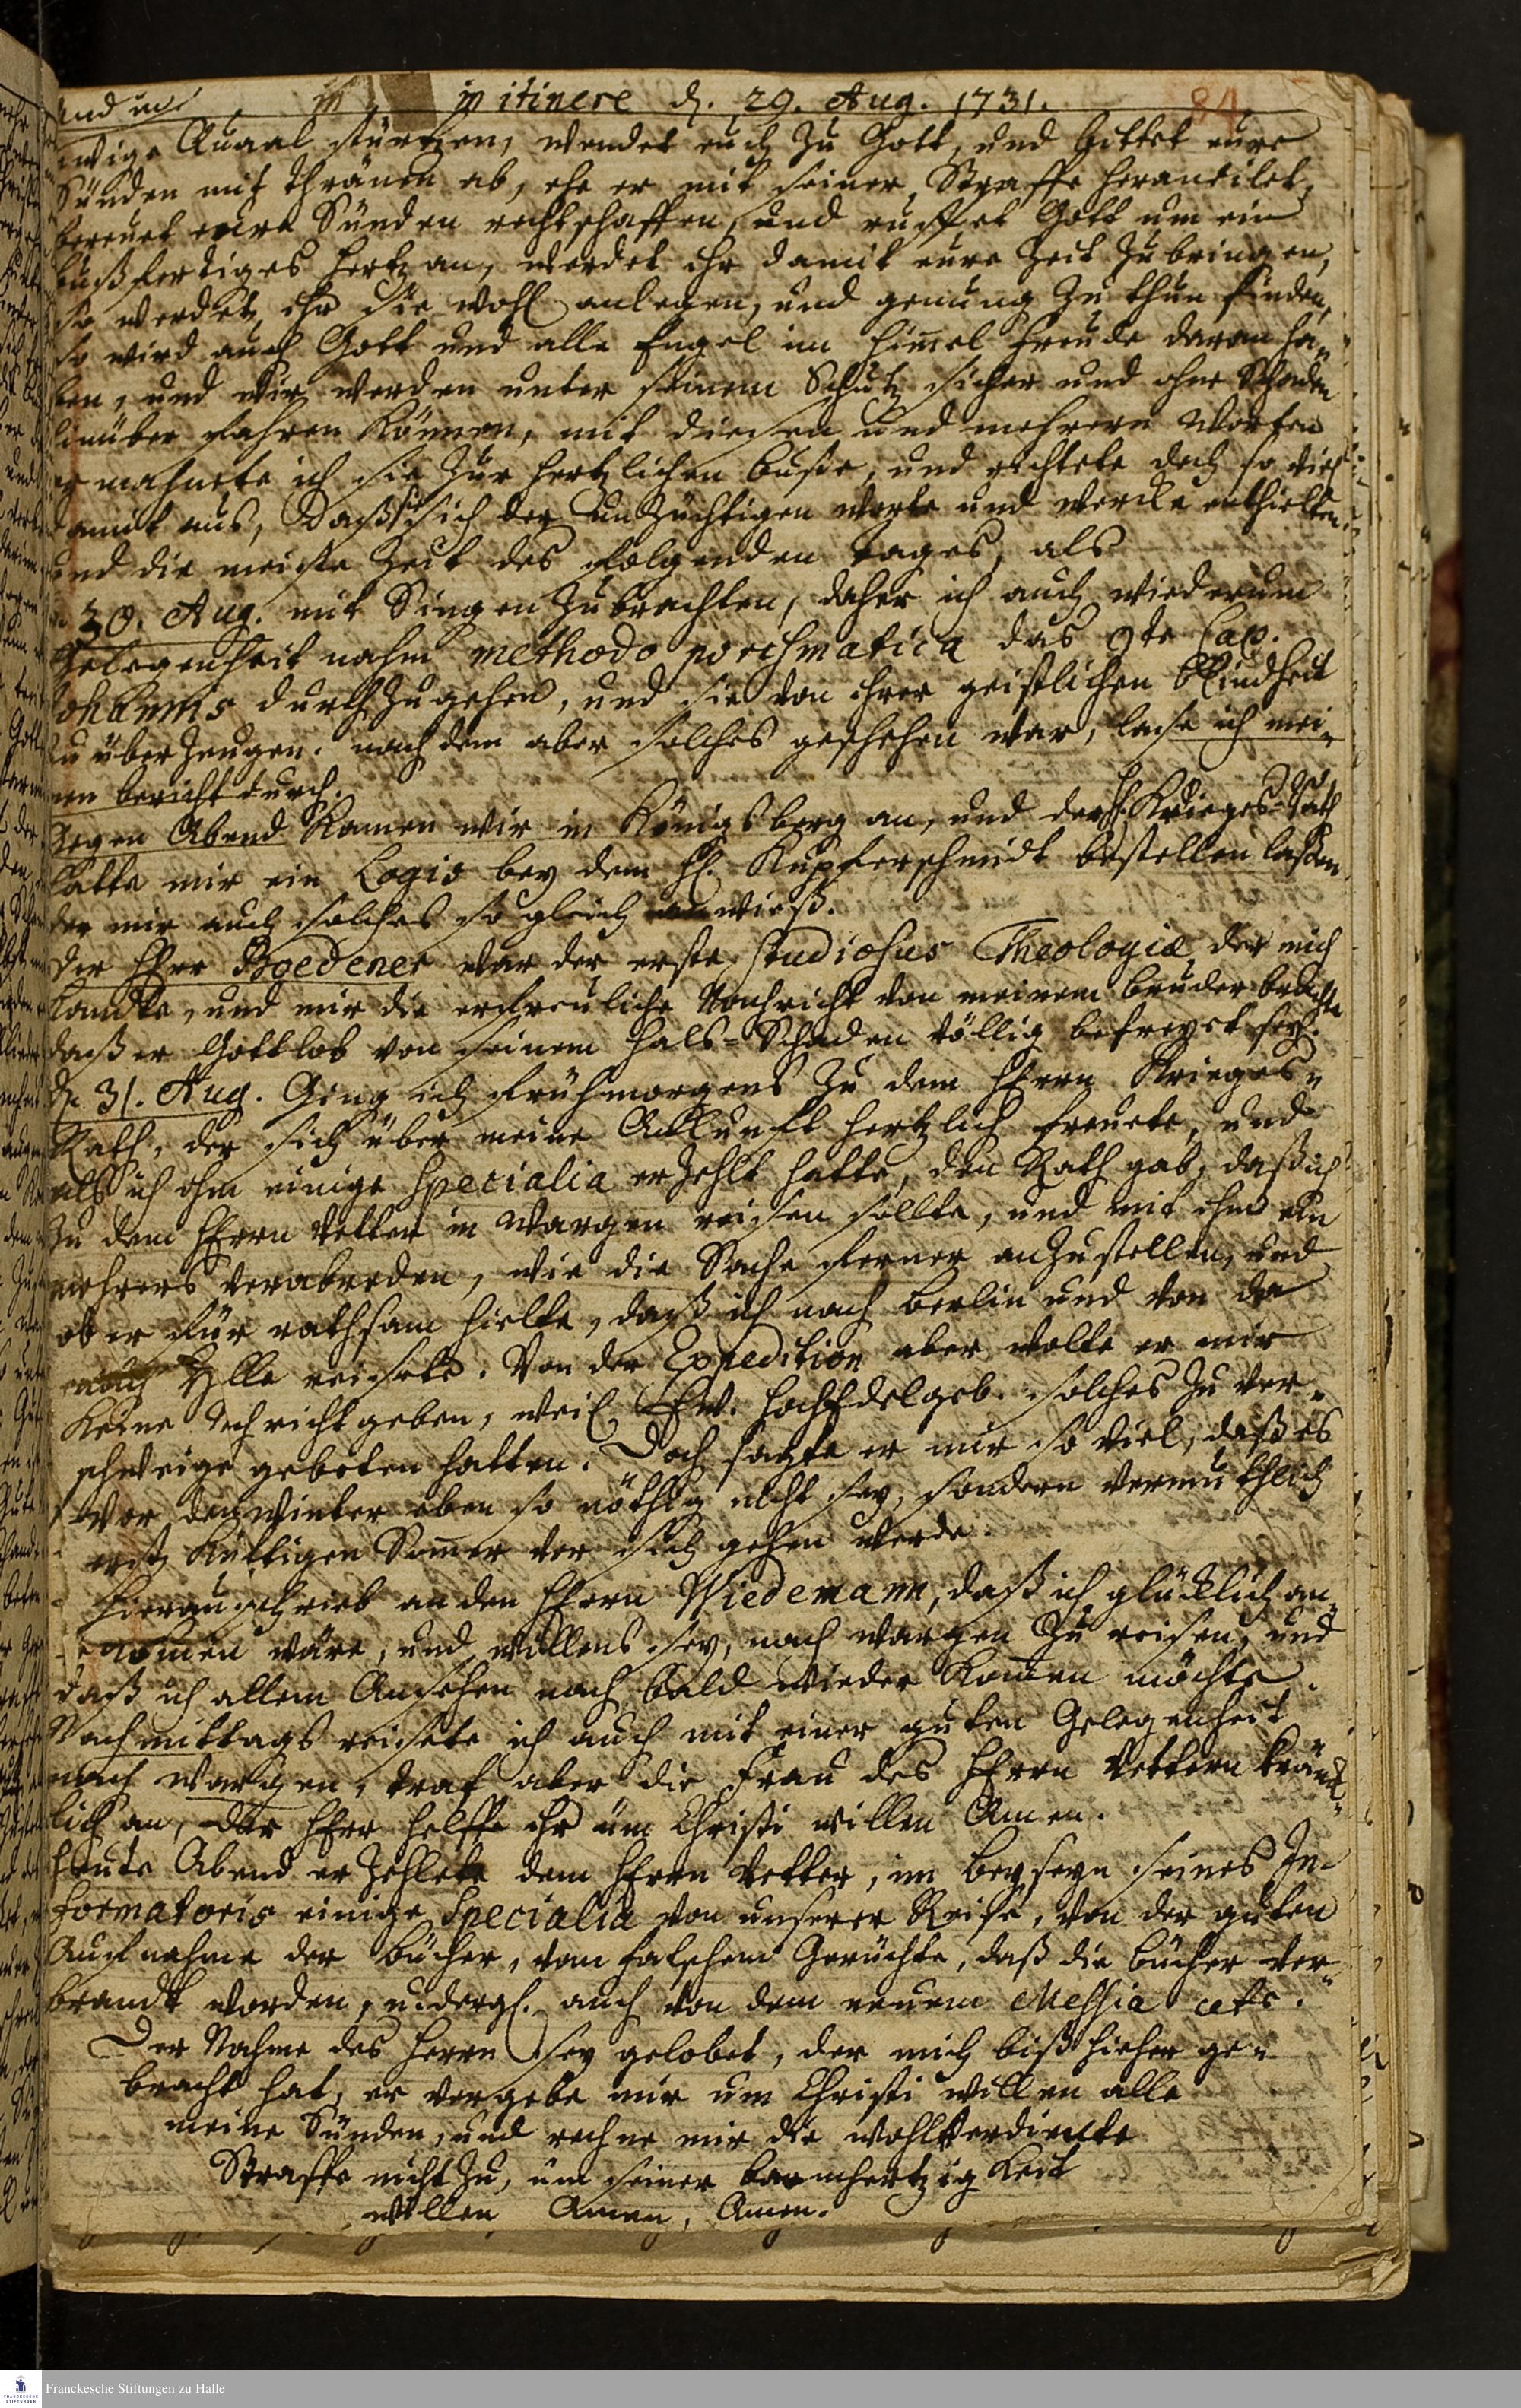 in itinere d. 29. Aug. 1731.
84
ewige Quaal stürtzen, wendet euch zu Gott, und bittet eure
Sünden mit thränen ab, ehe er mit seiner Straffe heraneilet,
bereuet eure Sünden rechtschaffen, und ruffet Gott um ein
bußfertiges hertz an, werdet ihr damit eure Zeit zubringen,
so werdet ihr sie wohl anlegen, und genung zu thun finden,
so wird auch Gott und alle Engel im Himel freude daran ha-
ben, und wir werden unter seinem Schutz sicher und ohne Schaden
hinüber fahren können, mit diesen und mehrern worten
ermahnete ich sie zur hertzlichen buße, und richtete doch so viel
damit aus, daß sie sich der unzüchtigen worte und wercke enthielten
und die meiste Zeit des folgenden tages, als
30. Aug. mit Singen zubrachten, daher ich auch wiederum
Gelegenheit nahm methodo porchmatica das 9te Cap.
Johannis durchzugehen, und sie von ihrer geistlichen blindheit
zu überzeugen. nach dem aber solches geschehen war, lase ich mei-
nen bericht durch.
Gegen Abend kamen wir in Königsberg an, und der H. Krieges-Rath
hatte mir ein Logis bey dem H. Kupferschmidt bestellen laßen,
der mir auch solches so gleich anwieß.
Der Herr Boedener war der erste Studiosus Theologiæ, der mich
kandte, und mir die erfreuliche Nachricht von meinem bruder brachte
daß er Gottlob von seinem Hals-Schaden völlig befreyet sey.
d. 31. Aug. Ging ich frühmorgens zu dem Herrn Krieges-
Rath, der sich über meine Ankunft hertzlich freuete, und
als ich ihm einige Specialia erzehlt hatte, den Rath gab, daß ich
zu dem Herrn Vetter in Wargen reisen sollte, und mit ihm ein
mehrers verabreden, wie die Sache ferner anzustellen, und
ob er für rathsam hielte, daß ich nach Berlin und von da
nach Halle reisete. Von der Expedition aber wolte er mir
keine Nachricht geben, weil Ew. HochEdelgeb. solches zu ver-
schweigen geboten hatten. Doch sagte er mir so viel, daß es
vor den winter eben so nöthig nicht sey, sondern vermuthlich
erst künftigen Somer vor sich gehen werde.
Hierauf schrieb an den Herrn Wiedemann, daß ich glücklich an-
gekomen wäre, und willens sey, nach Wargen zu reisen, und
daß ich allem Ansehen nach bald wieder komen möchte.
Nachmittags reisete ich auch mit einer guten Gelegenheit
nach Wargen, traf aber die Frau des Herrn Vettern kränk-
lich an, der Herr helffe ihr um Christi willen Amen.
Heute Abend erzehlete dem Herrn Vetter, im beyseyn seines In-
formatoris einige Specialia von unserer Reise, von der guten
Aufnahme der bücher, vom falschem Gerüchte, daß die bücher ver-
brandt worden, u. dergl. auch von dem neuem Messia etc.
Der Nahme des Herrn sey gelobet, der mich biß hieher ge-
bracht hat, er vergebe mir um Christi willen alle
meine Sünden, und rechne mir die wohlverdiente
Straffe nicht zu, um seiner barmhertzigkeit
willen Amen, Amen.
FRANCKESCHE STIFTUNGEN
Franckesche Stiftungen zu Halle